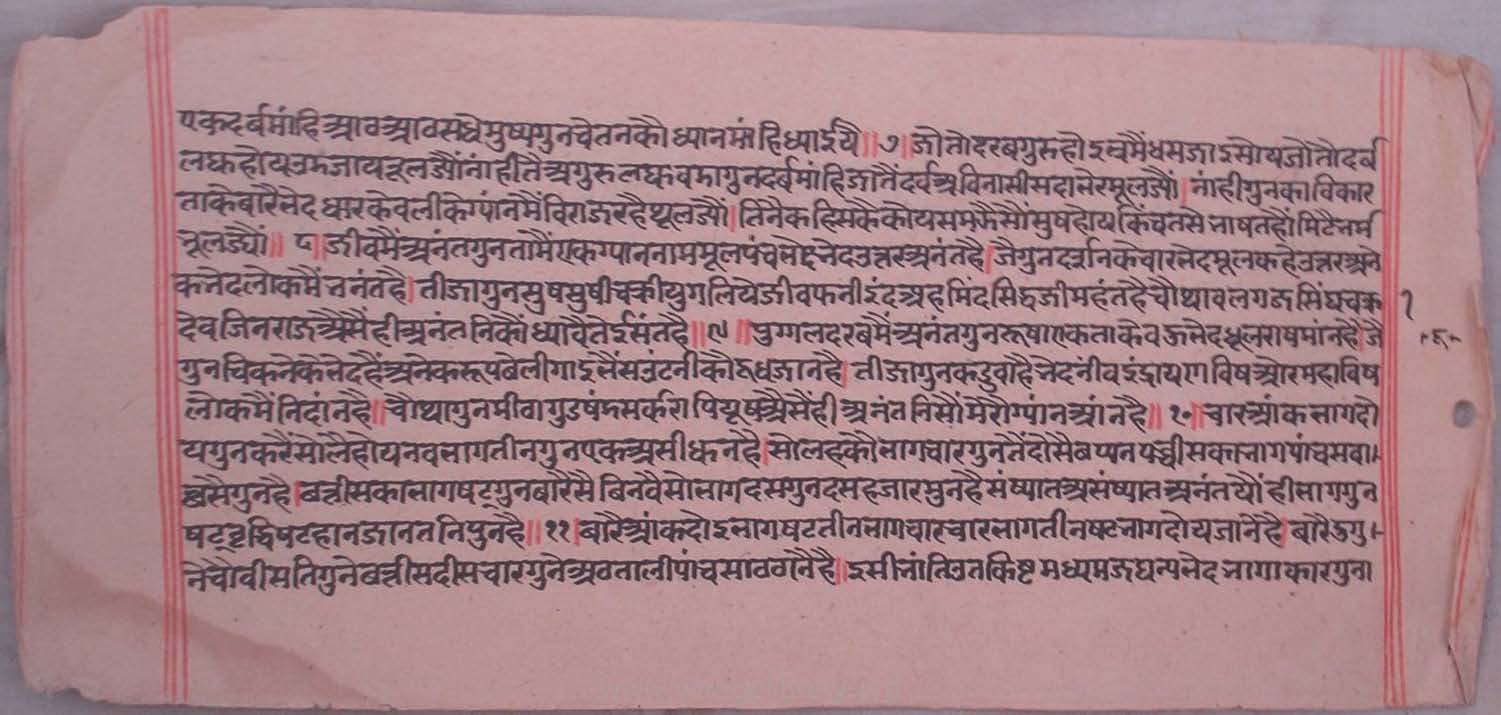 एकदर्बमांहि आव आव सधे मुष्यगुन चेतनकौ ध्यानमांहि ध्याईयै ॥ ७ ॥ जौ तो दरब गुरु होइ चमैं धस जाइ सोय जो तो दर्ब
लघु होय उड जाय तूल ज्यौं नांही तै अगुरु लघु वडा गुन दर्बमांहि जातैं दर्व अविनासी सदा मेरमूल ज्यौं । नांही गुनका विकार
ताके बारै भेद धार केवलीके ग्यांनमैं विराज रहै थूल ज्यौं । तिनै कहि सकै कोय समझै सौं सुष होय किंचतसे भाषत हौं मिटै भर्म
भूल ज्यौं ॥ ८ ॥ जीवमैं अनंत गुन तामैं एक ग्यान नाम मूल पंच भेद उत्तर अनंत है । जै गुन दर्शनके चार भेद मूल कहे उत्तर अने
क भेद लोकमैं भनंत है । तीजा गुन सुष सुषी चक्री युगलिये जीव फनीइंद अहमिंद सिद्धजी महंत है चौथा बल गज सिंघ चक्र १
देव जिनराज अैसैं ही अनंतनिकौं ध्यावै तेई संत है ॥ ९ ॥ पुग्गल दरबमैं अनंत गुन रूषा एक ताके बज्र भेद धूल राष मांन है । जे
गुन चिकनेके भेद हैं अनेक रूप बेली गाइ भैंस उंटनीकौ दूध जान है । तीजा गुन कडुवा है भेद नींव इंद्रायण विष और महाविष
लोकमैं निदांन है ॥ चौथा गुन मीठा गुड षंड सर्करा पियूष अैसैं ही अनंत निसौं मेरौ ग्यांन आंन है ॥ १० ॥ चार आंक भाग दो
य गुन करैं सोलै होय नव भाग तीन गुन एक असी धन है । सोलहकौ भाग चार गुनतैं दोसै बप्पन पच्चीसका भाग पांच सवा
छसै गुन है । बत्तीसका भाग षट् गुन बारैसै बिनवै सो भाग दस गुन दस हजार सुन है संष्यात असंष्यात अनंत यौं ही भाग गुन
षट् वृद्धि षट हान जानत निपुन है ॥ ११ । बारै आंक दोइ भाग षट तीन भाग चार चार भाग तीन षष्ट भाग दोय जानै है । बारै दुगु
ने चौवीस तिगुने बत्तीस दीस चार गुने अठतालीपांच साठ ठानै है ॥ इसी भांति उतकिष्ट मध्यम जघन्य भेद भागाकार गुना